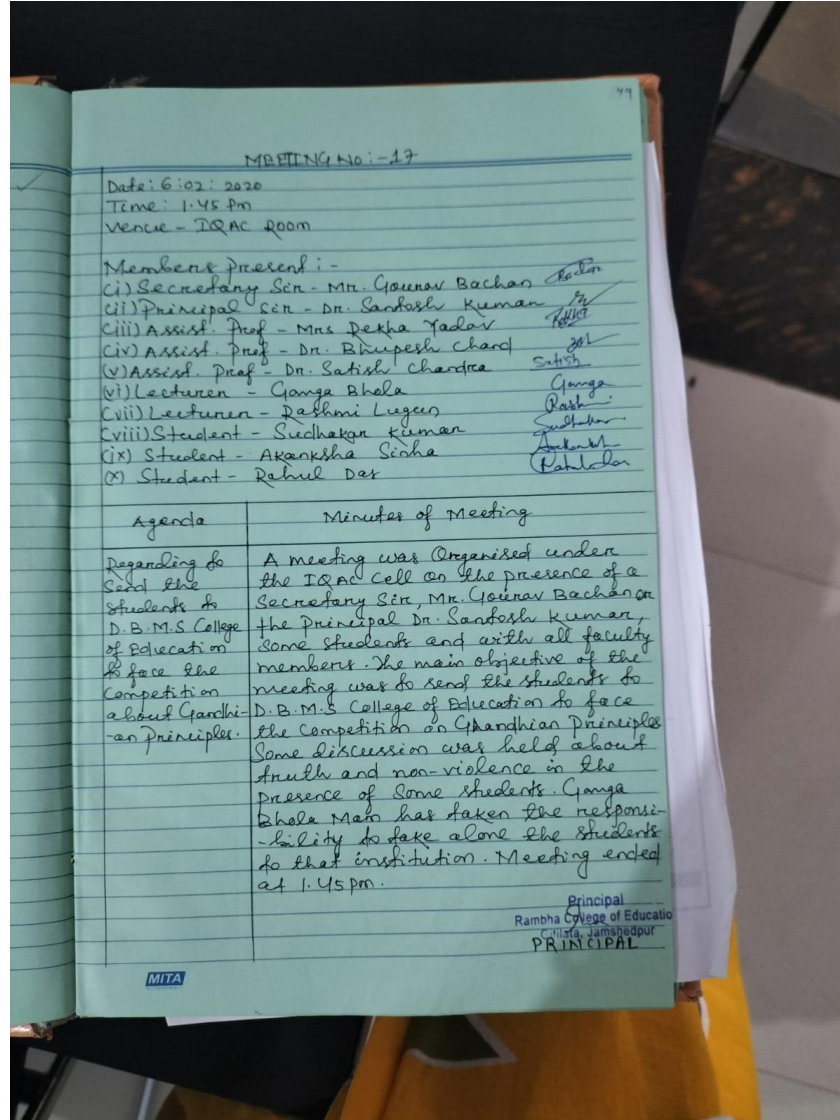 49
MEETING NO:-17
Date: 6:02: 2020
Time: 1.45 Pm
Venue - IQAC Room
Members Present :-
(i) Secretary Sir - Mr. Gourav Bachan
(ii) Principal Sir - Dr. Santosh Kumar
(iii) Assist. Prof - Mrs Rekha Yadav
(iv) Assist. Prof - Dr. Bhupesh Chand
(v) Assist. Prof - Dr. Satish Chandra Satish
(vi) Lecturer - Ganga Bhola Ganga
(vii) Lecturer - Rashmi Lugun Rash
(viii) Student - Sudhakar Kumar Sudhakar
(ix) Student - Akanksha Sinha
(x) Student - Rahul Das
Agenda
Regarding to
Send the
students to
D.B.M.S College
of Education
to face the
Competition
about Gandhi-
-an Principles.
Minutes of Meeting
A meeting was Organised under
the IQAC Cell on the presence of a
Secretary Sir, Mr. Gourav Bachan or
the Principal Dr. Santosh Kumar,
some students and with all faculty
members. The main objective of the
meeting was to send the students to
D.B.M.S College of Education to face
the competition on Ghandhian Principles
Some discussion was held about
truth and non-violence in the
presence of some students. Ganga
Bhola Mam has taken the responsi-
-bility to take alone the students
to that institution. Meeting ended
at 1.45 pm.
Principal
Rambha College of Educatio
Gitilata, Jamshedpur
PRINCIPAL
MITA